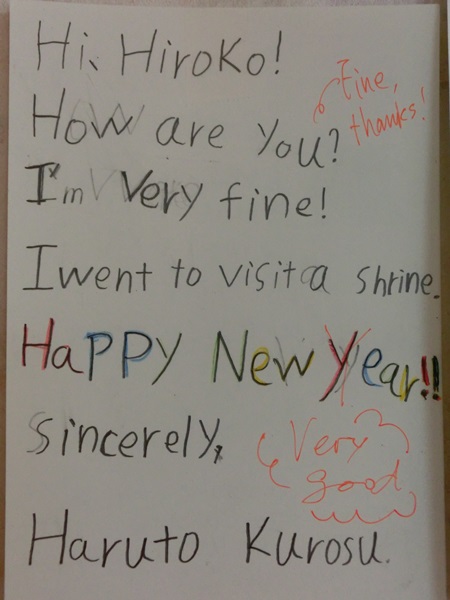 Hi, Hiroko!
Fine,
thanks!
How are you?
I'm very fine!
I went to visit a shrine.
Happy New Year!!
Sincerely,
Very
good
Haruto Kurosu.